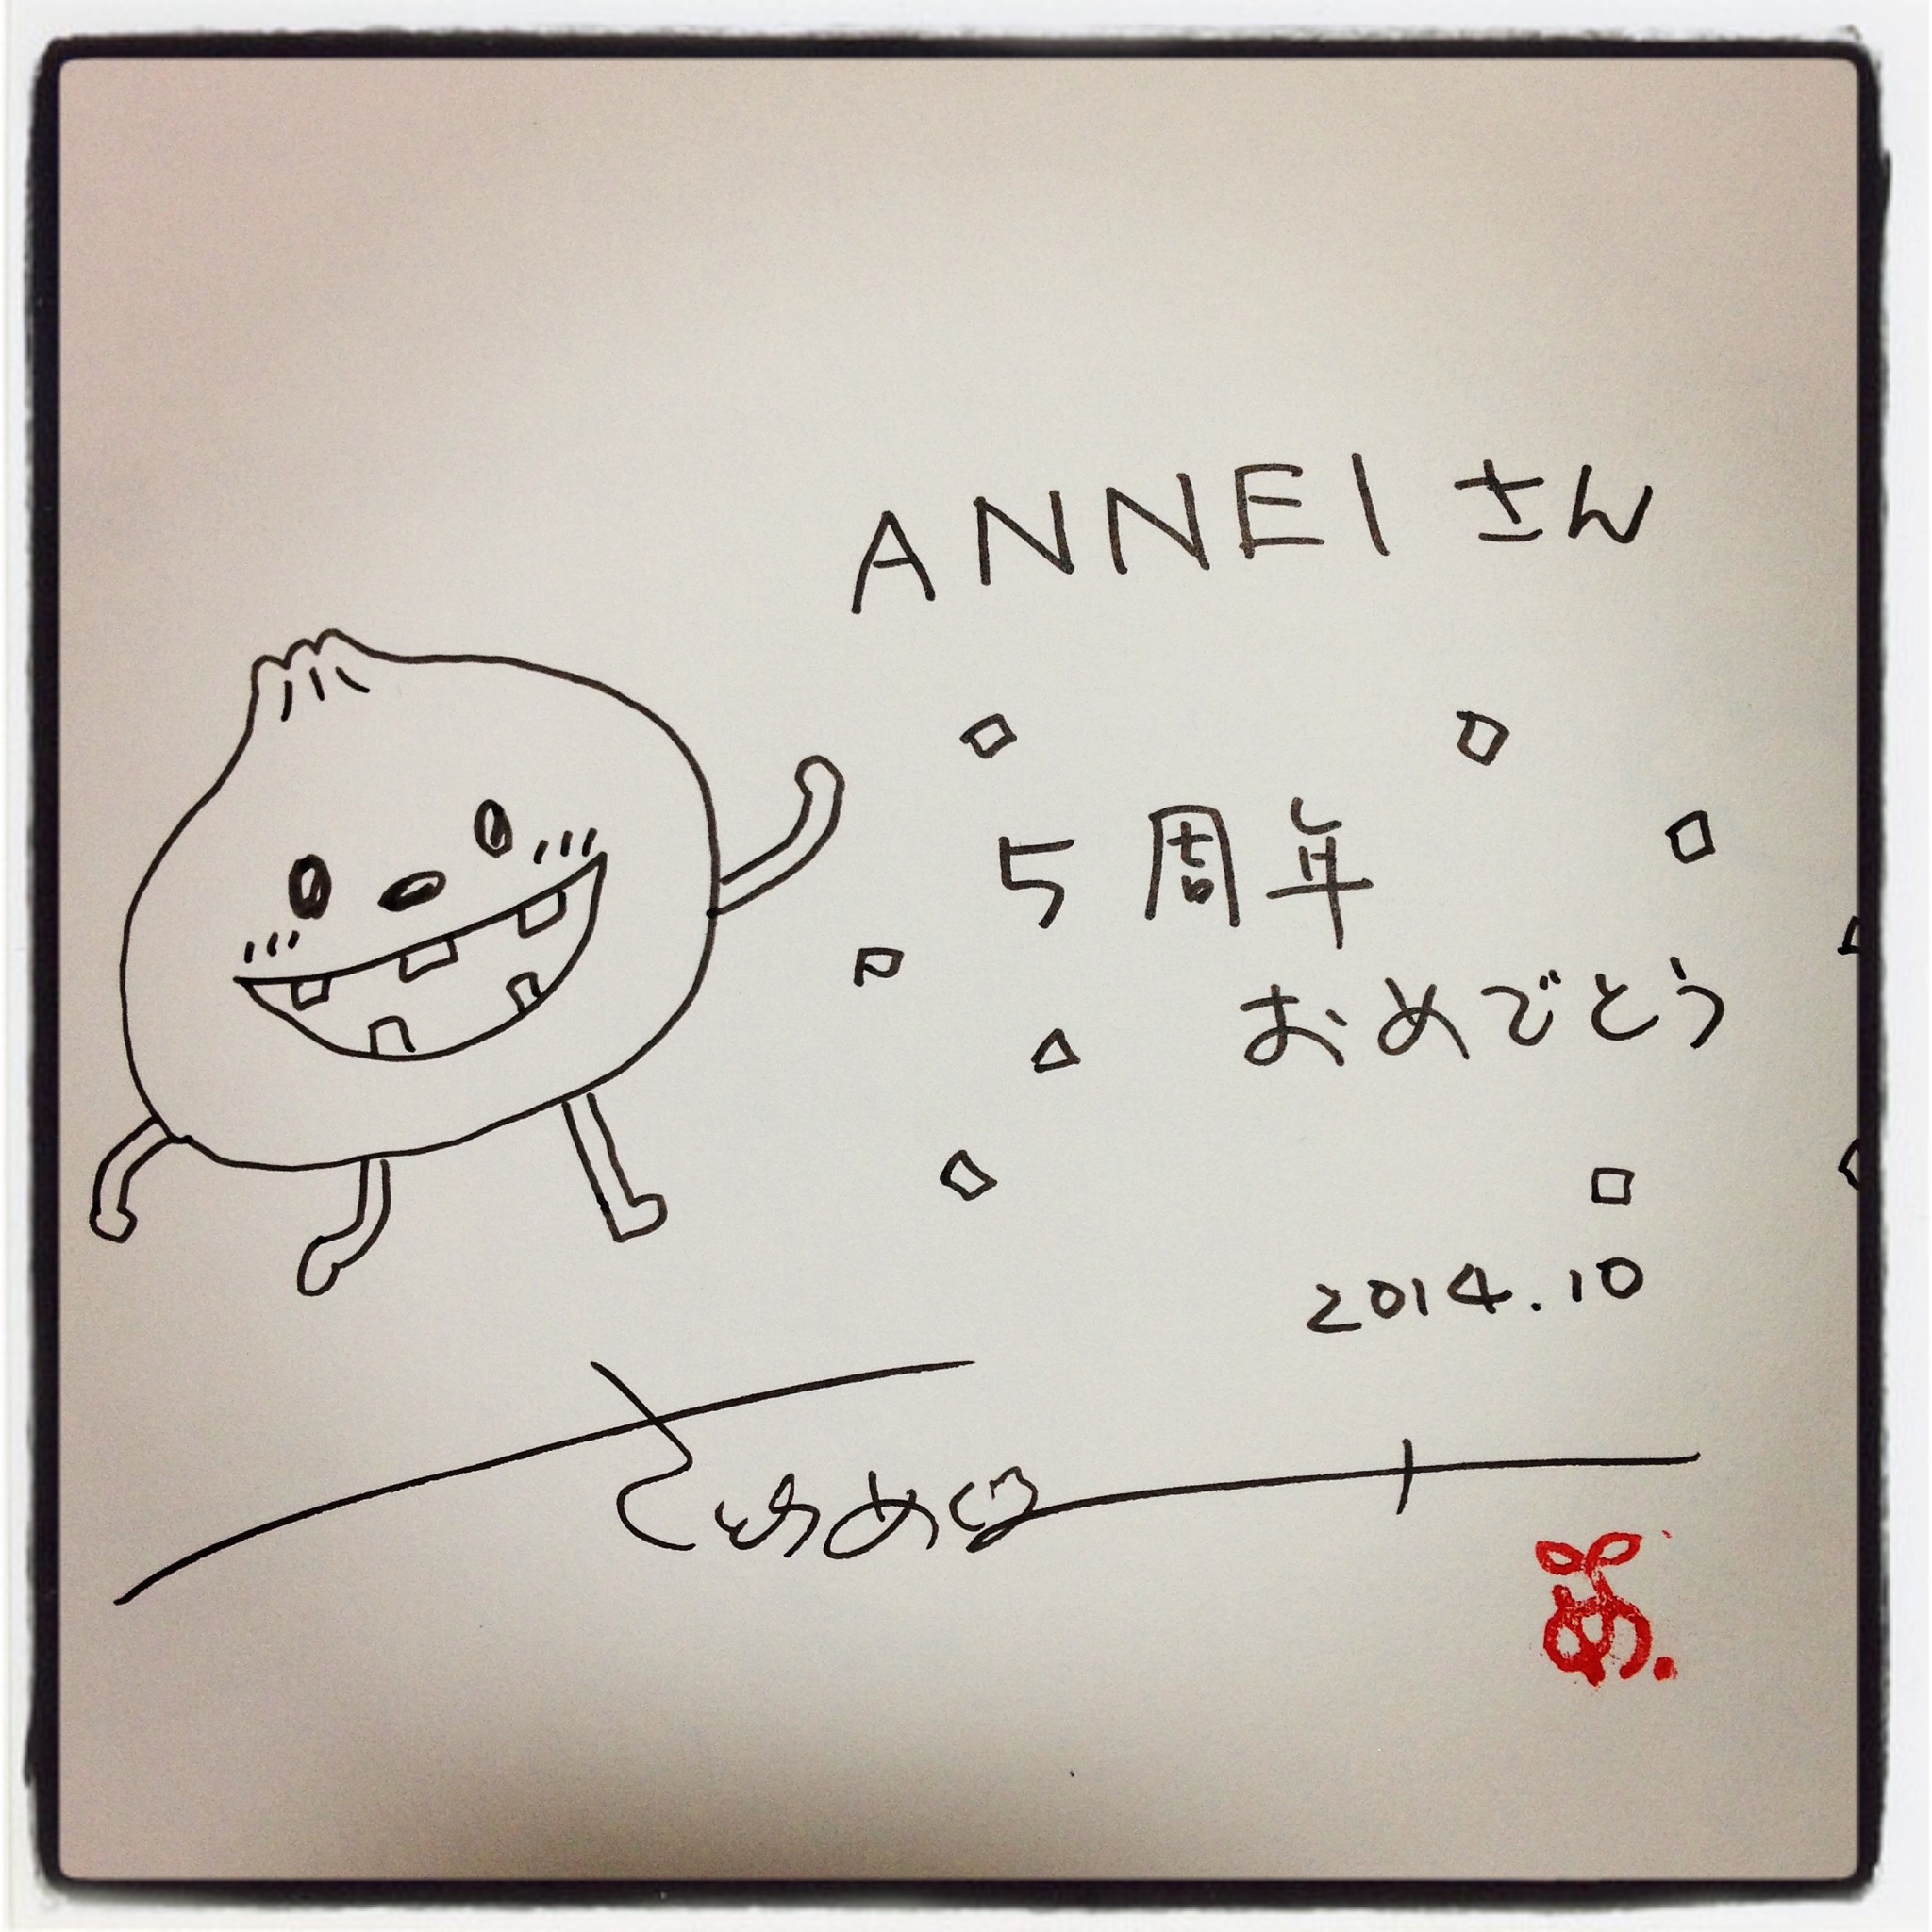 ANNEIさん
5周年
おめでとう
2014.10
め.